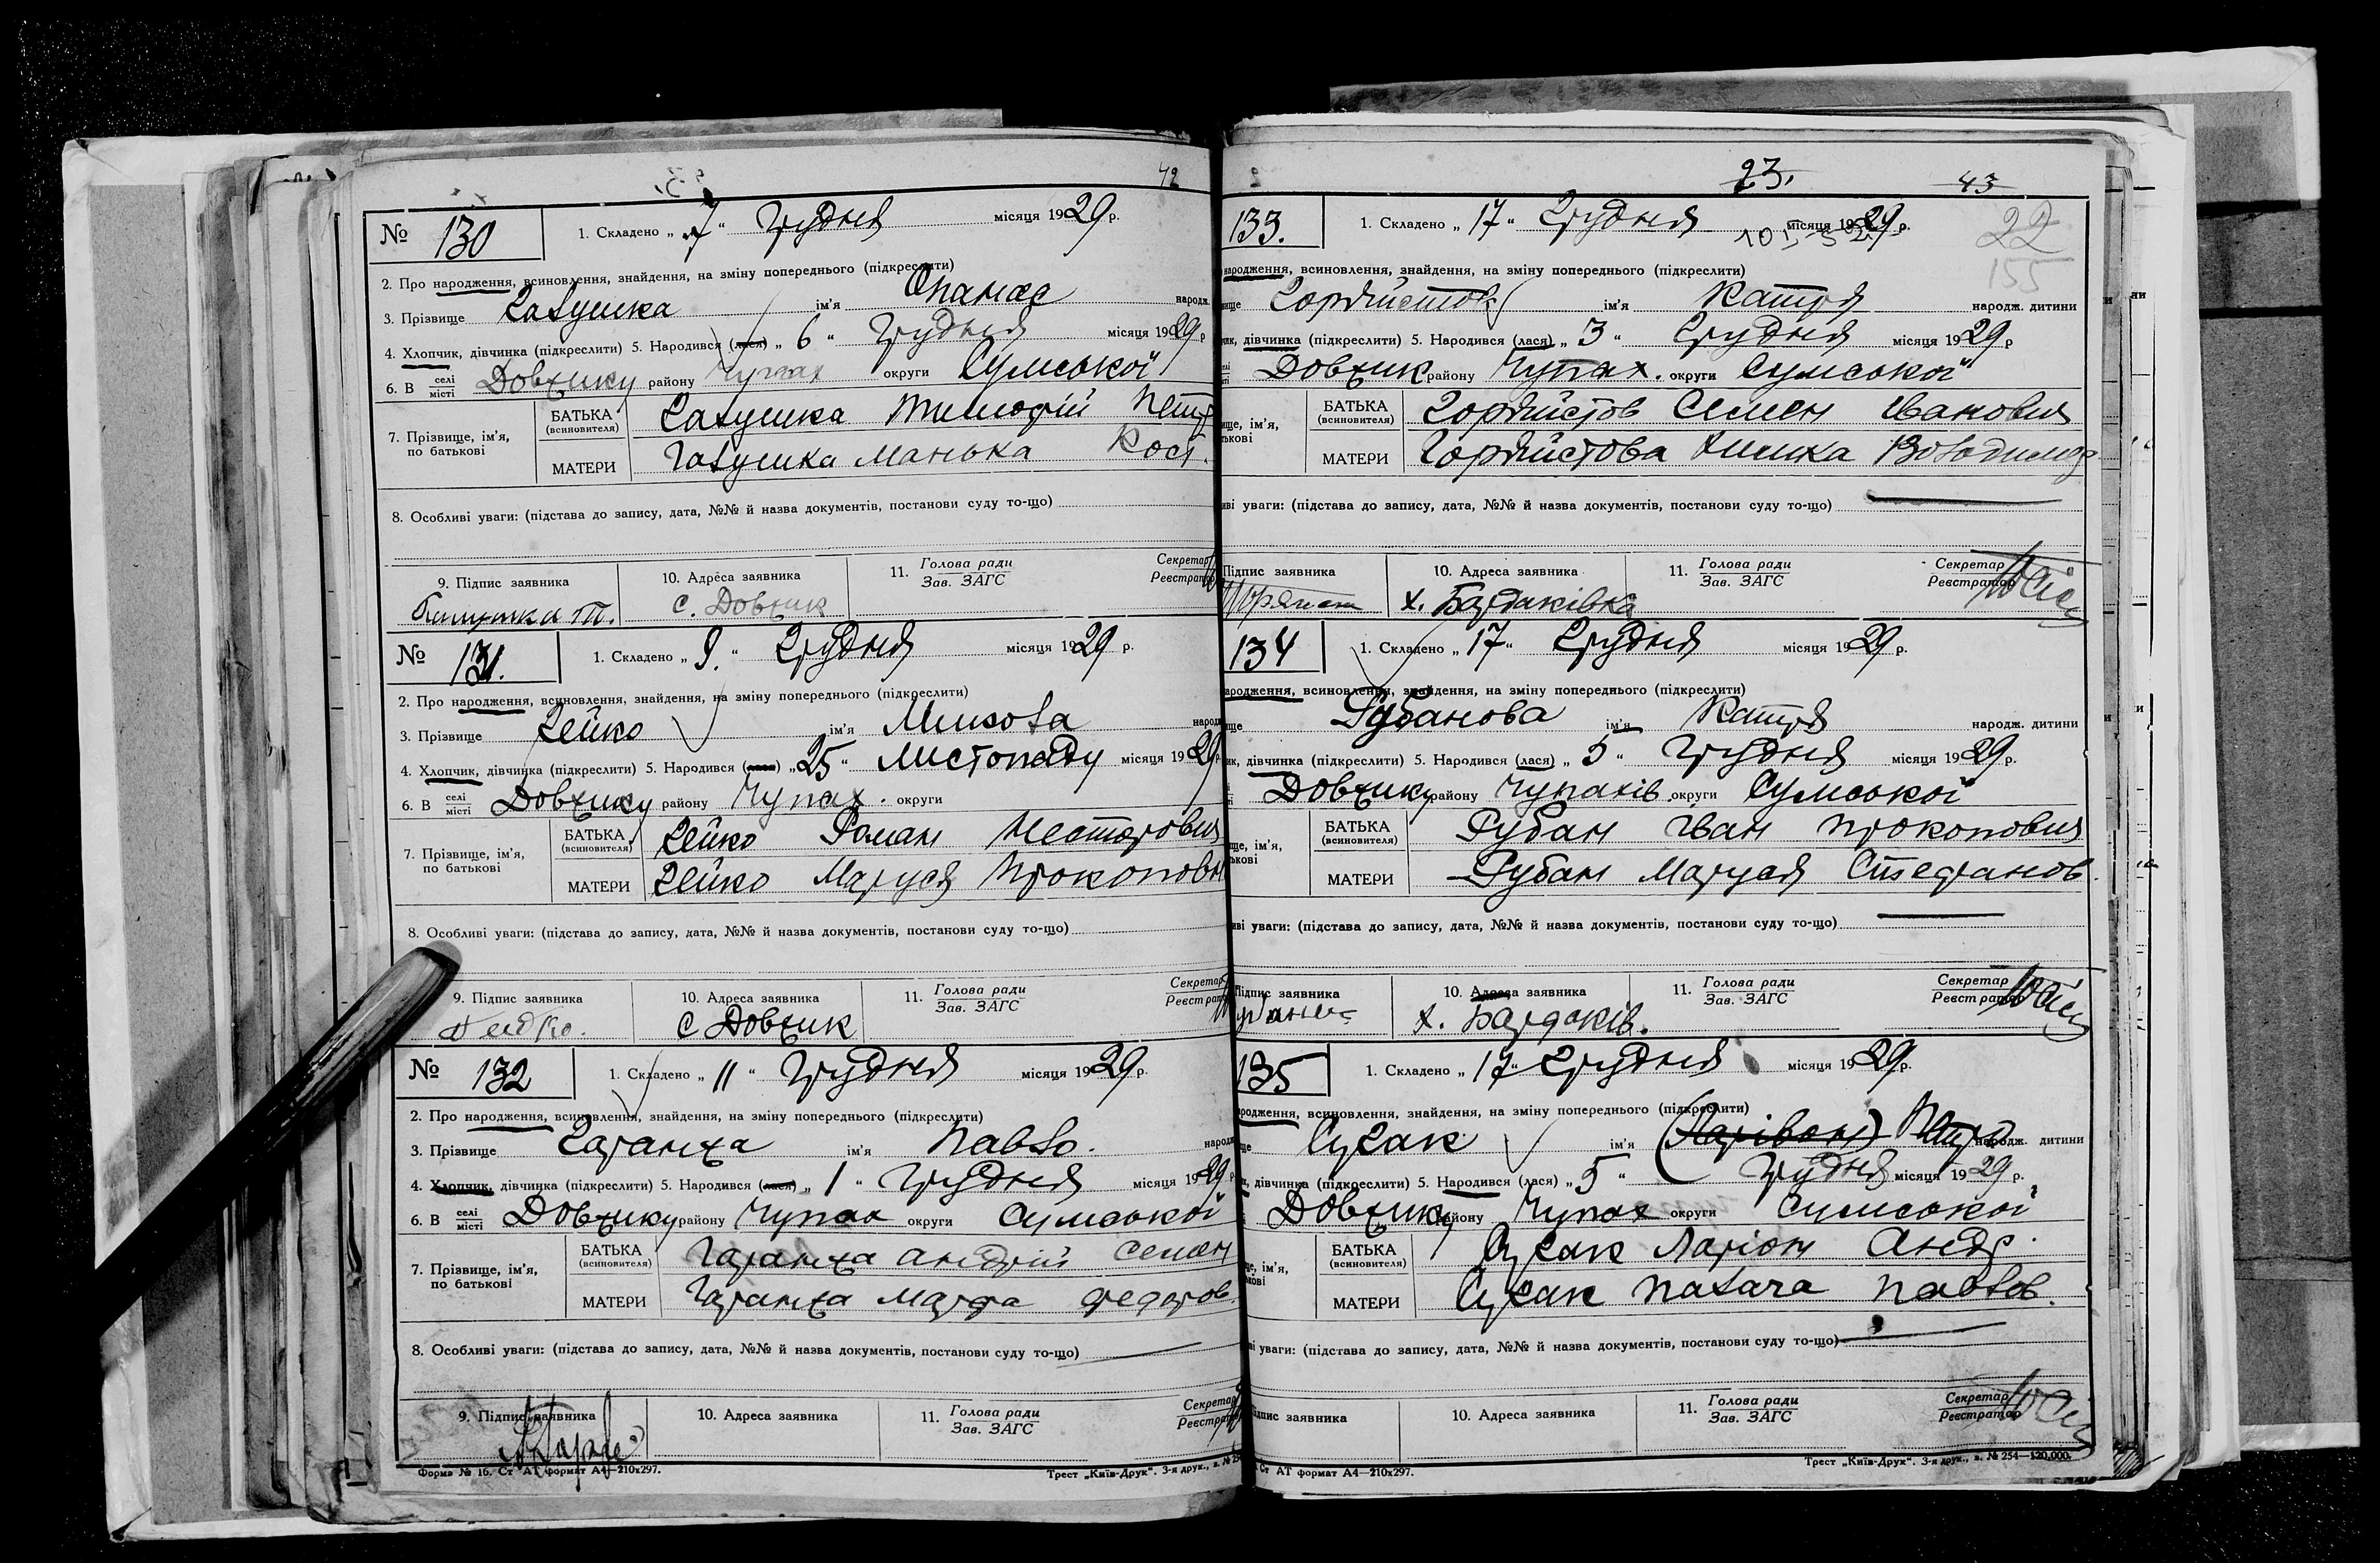 42
№ 130
1. Складено „7“ Грудня місяця 1929 р.
2. Про народження, всиновлення, знайдення, на зміну попереднього (підкреслити)
3. Прізвище Галушка ім'я Опанас народж.
4. Хлопчик, дівчинка (підкреслити) 5. Народився (лася) „6“ Грудня місяця 1929 р
6. В селі місті Довжику району Чупах округи Сумської
7. Прізвище, ім'я, по батькові
БАТЬКА (всиновителя) Галушка Тимофій Петр
МАТЕРИ Галушка Манька Кост.
8. Особливі уваги: (підстава до запису, дата, №№ й назва документів, постанови суду то-що)
9. Підпис заявника
10. Адреса заявника с. Довжик
11. Голова ради Зав. ЗАГС
Секретар Реєстратор
№ 131.
1. Складено „9.“ Грудня місяця 1929 р.
2. Про народження, всиновлення, знайдення, на зміну попереднього (підкреслити)
3. Прізвище Гейко ім'я Микола народж
4. Хлопчик, дівчинка (підкреслити) 5. Народився (лася) „25“ Листопаду місяця 1929
6. В селі місті Довжику району Чупах. округи
7. Прізвище, ім'я, по батькові
БАТЬКА (всиновителя) Гейко Роман Несторович
МАТЕРИ Гейко Маруся Прокоповн
8. Особливі уваги: (підстава до запису, дата, №№ й назва документів, постанови суду то-що)
9. Підпис заявника
10. Адреса заявника с Довжик
11. Голова ради Зав. ЗАГС
Секретар Реєстратор
№ 132
1. Складено „11“ Грудня місяця 1929 р.
2. Про народження, всиновлення, знайдення, на зміну попереднього (підкреслити)
3. Прізвище Гаранжа ім'я Павло. народж
4. Хлопчик, дівчинка (підкреслити) 5. Народився (лася) „1“ Грудня місяця 1929 р
6. В селі місті Довжику району Чупах округи Сумської
7. Прізвище, ім'я, по батькові
БАТЬКА (всиновителя) Гаранжа Андрій Семен
МАТЕРИ Гаранжа Марфа Федоров.
8. Особливі уваги: (підстава до запису, дата, №№ й назва документів, постанови суду то-що)
9. Підпис заявника
10. Адреса заявника
11. Голова ради Зав. ЗАГС
Секретар Реєстратор
Форма № 16. Ст АТ формат А4—210х297.
Трест „Київ-Друк“. 3-я друк., з. № 254
23. 43
133.
1. Складено „17“ Грудня місяця 1929 р.
22
155
народження, всиновлення, знайдення, на зміну попереднього (підкреслити)
ище Гордійсток ім'я Катря народж. дитини
ик, дівчинка (підкреслити) 5. Народився (лася) „3“ Грудня місяця 1929 р
Довжик району Чупах. округи Сумської
ище, ім'я, тькові
БАТЬКА (всиновителя) Гордійстов Семен Іванович
МАТЕРИ Гордійстова Химка Володимир
иві уваги: (підстава до запису, дата, №№ й назва документів, постанови суду то-що)
Підпис заявника
10. Адреса заявника х. Бардаківка
11. Голова ради Зав. ЗАГС
Секретар Реєстратор
134
1. Складено „17“ Грудня місяця 1929 р.
ародження, всиновлення, знайдення, на зміну попереднього (підкреслити)
ище Рубанова ім'я Катря народж. дитини
ик, дівчинка (підкреслити) 5. Народився (лася) „5“ Грудня місяця 1929 р.
Довжику району Чупахів округи Сумської
ще, ім'я, ькові
БАТЬКА (всиновителя) Рубан Іван Прокопович
МАТЕРИ Рубан Маруся Стефанов.
иві уваги: (підстава до запису, дата, №№ й назва документів, постанови суду то-що)
Підпис заявника
10. Адреса заявника х. Бардаків.
11. Голова ради Зав. ЗАГС
Секретар Реєстратор
135
1. Складено „17“ Грудня місяця 1929 р.
ародження, всиновлення, знайдення, на зміну попереднього (підкреслити)
ще Сугак ім'я (Ларівон) Петро народж. дитини
, дівчинка (підкреслити) 5. Народився (лася) „5“ Грудня місяця 1929 р.
Довжику району Чупах округи Сумської
ще, ім'я, ькові
БАТЬКА (всиновителя) Сугак Ларіон Андр.
МАТЕРИ Сугак Палага Павлов.
ві уваги: (підстава до запису, дата, №№ й назва документів, постанови суду то-що)
дпис заявника
10. Адреса заявника
11. Голова ради Зав. ЗАГС
Секретар Реєстратор
Ст АТ формат А4—210х297.
Трест „Київ-Друк“. 3-я друк., з. № 254—120.000.